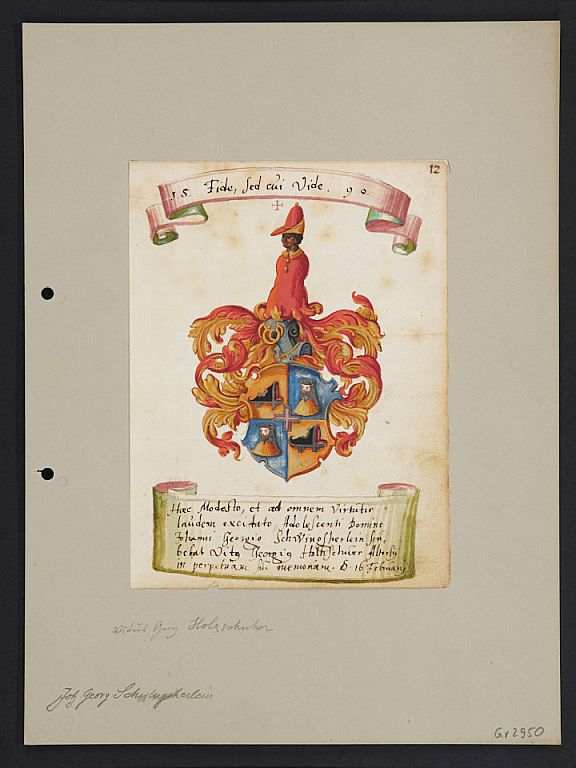 12
15 Fide, sed cui Vide. 90
Haec Modesto, et ad omnem Virtutis
laudem excitato Adolescenti Domino
Johanni Georgio Schwingsherlein scri,
bebat Vitus Georgius Holtzschuer Altorfij
in perpetuam sui memoriam. d. 16 Februarij
Vitus Georg Holzschuher
Joh. Georg Schwingsherlein
Gr 2950